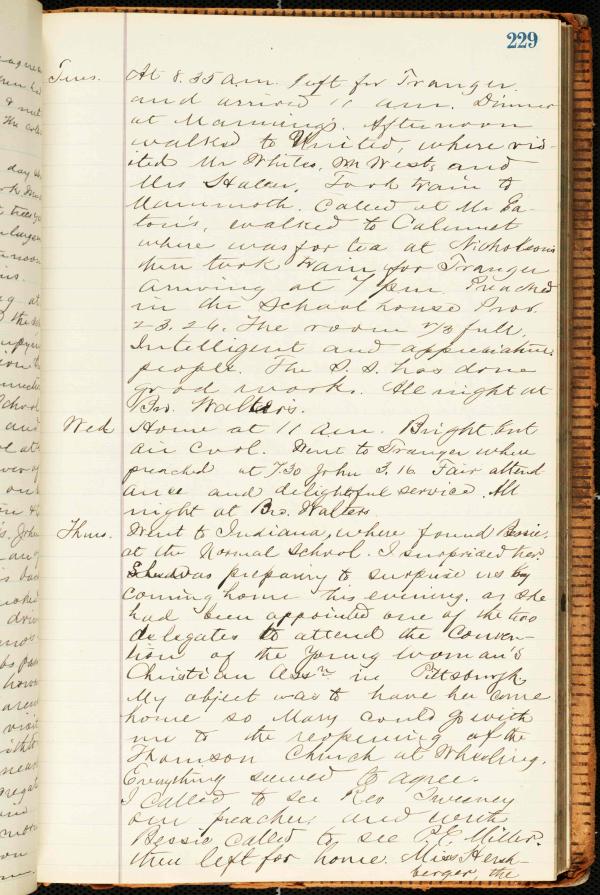 229
Tues. At 8.35 a.m. left for Tranger
and arrived 11 am. Dinner
at Mannings. Afternoon
walked to United, where vis-
ited Mr Whites, Mr Wests, and
Mrs Stater. Took train to
Mammoth. Called at Mr Ea-
ton's, walked to Calumet
where was for tea at Nicholsons
then took train for Tranger
arriving at 7 pm. Preached
in the School house Prov.
23.26. The room 2/3 full.
Intelligent and appreciative
people. The S. S. has done
good work. All night at
Bro. Walter's.
Wed Home at 11 am. Bright but
air cool. Went to Tranger where
preached at 7.30 John 3.16 Fair attend
ance and delightful service. All
night at Bro. Walters
Thurs. Went to Indiana, where found Bessie,
at the Normal School. I surprised her.
She was preparing to surprise us by
coming home this evening, as she
had been appointed one of the two
delegates to attend the Conven-
tion of the Young Woman's
Christian Assn. in Pittsburgh,
My object was to have her come
home so Mary could go with
me to the reopening of the
Thomson Church at Wheeling.
Everything seemed to agree.
I called to see Rev Tweeney
our preacher, and with
Bessie called to see P.C. Miller.
then left for home. Miss Hersh-
berger, the